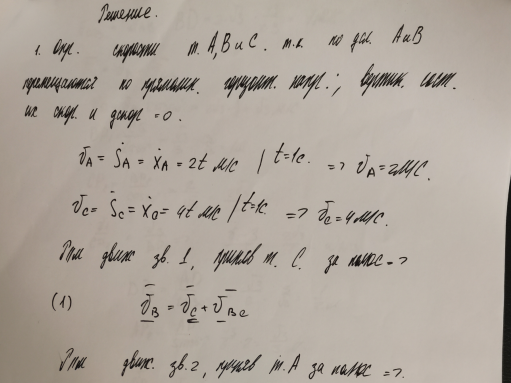 Решение.
1. Опр. скорости т. A, B и C. т.к. по усл. A и B
перемещаются по прямолин. горизонт. напр., вертик. сост.
их скор. и ускор = 0.
V_A = Ṡ_A = ẋ_A = 2t м/с / t=1c. => V_A = 2м/с.
V_C = Ṡ_C = ẋ_C = 4t м/с / t=1c. => V_C = 4м/с.
При движ. зв. 1, приняв т. C. за полюс =>
(1) V̄_B = V̄_C + V̄_BC
При движ. зв. 2, приняв т. A за полюс =>.